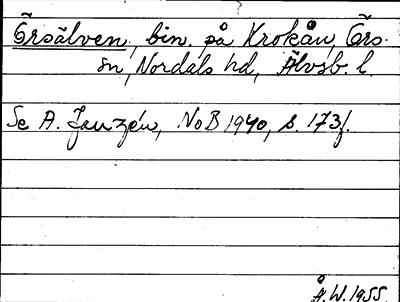 Örsälven, bin. på Krokån, Örs
sn, Nordals hd, Älvsb. l.
Se A. Janzén, NoB 1940, s. 173f.
Å.W. 1955.